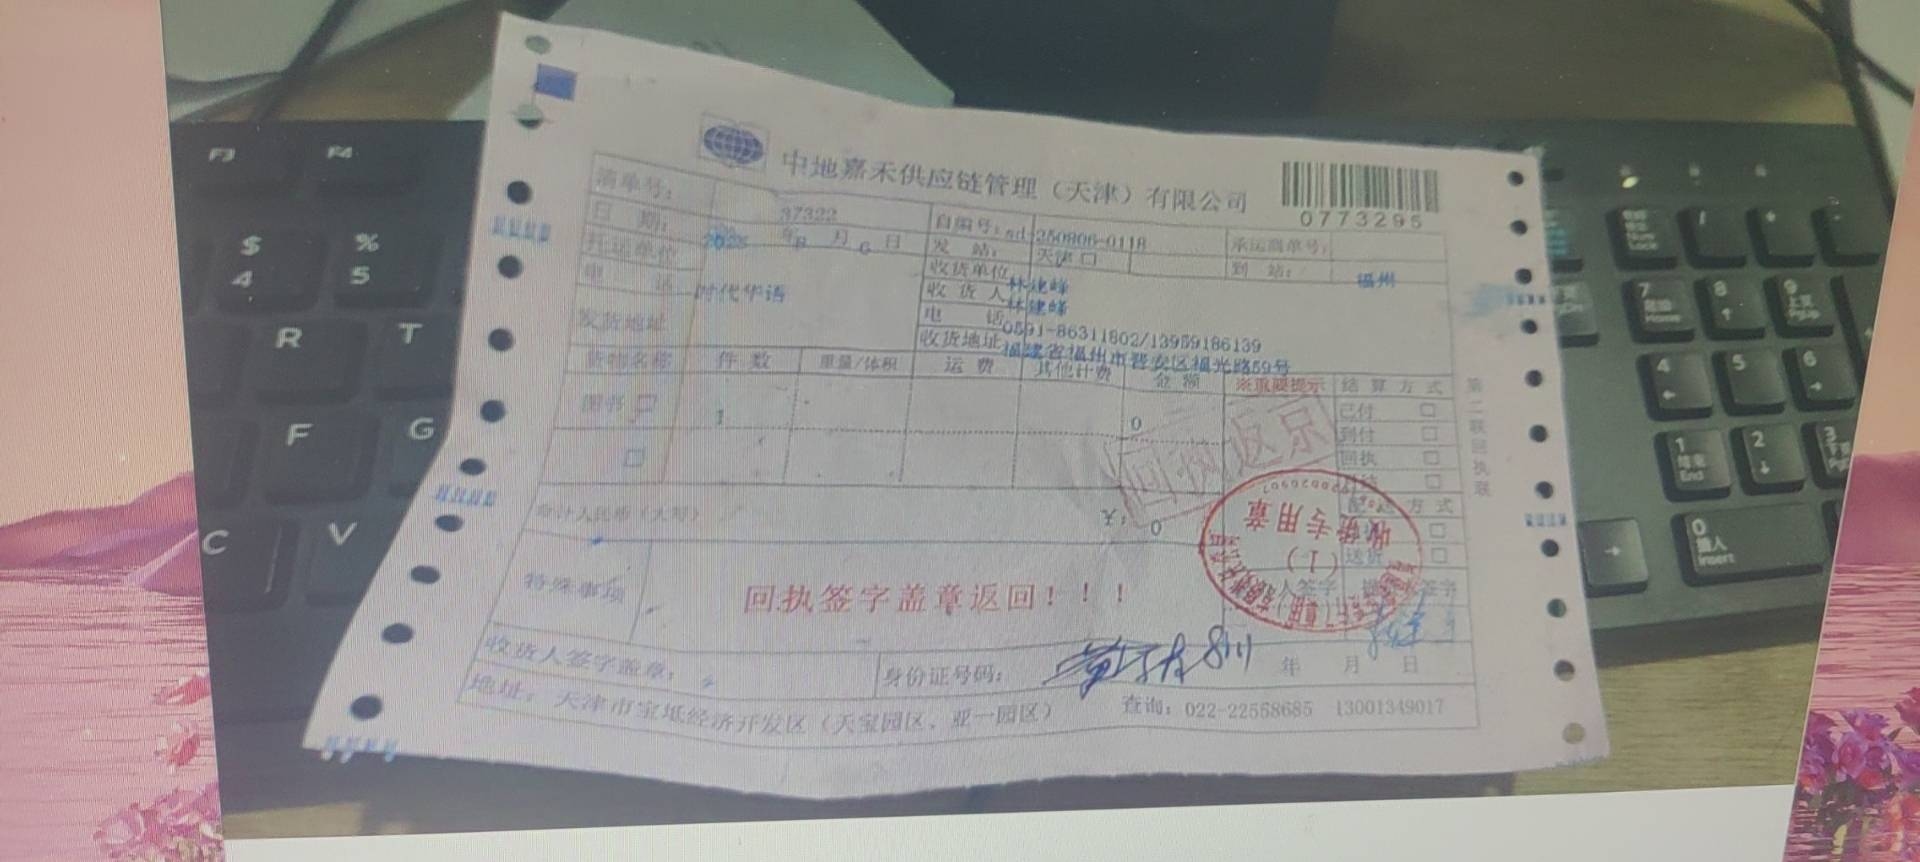 中地嘉禾供应链管理（天津）有限公司
0773295
清单号： 37322 自编号：sd 250806-0118 承运商单号：
日 期： 2025 年 8 月 6 日 发 站： 天津 到 站： 福州
托运单位 时代华语 收货单位 林建峰
电 话 收 货 人 林建峰
电 话 0591-86311802/13959186139
发货地址 收货地址 福建省福州市晋安区福光路59号
货物名称 件 数 重量/体积 运 费 其他计费 金 额 ※重要提示 结 算 方 式
图书 1 0 已付
到付
回执
回执返示
合计人民币（大写） 0 配送方式
收货专用章
（1）
送货
特殊事项 回执签字盖章返回！！！
收货人签字盖章： 身份证号码： 年 月 日
地址：天津市宝坻经济开发区（天宝园区、亚一园区） 查询：022-22558685 13001349017
第二联回执联
F3 F4
$ 4 % 5
R T
F G
C V
7 Home 8 9 PgUp
4 5 6
1 End 2 3
0 插入 Insert